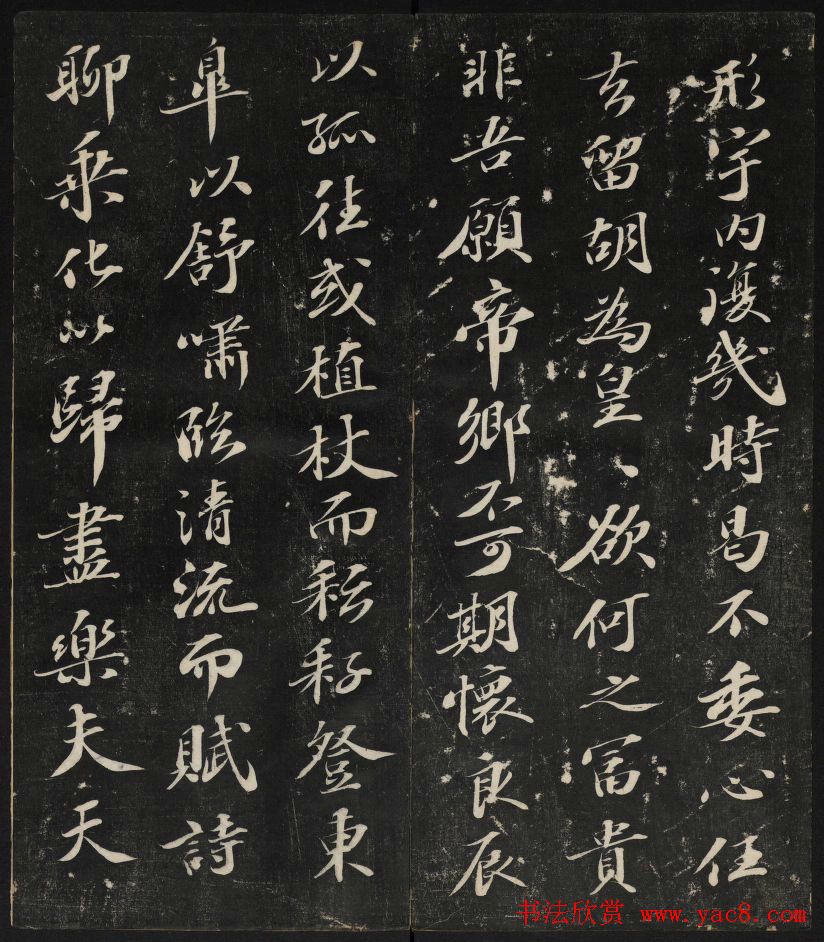 形宇内復幾時曷不委心任
去留胡為皇、欲何之富貴
非吾願帝鄉不可期懷良辰
以孤往或植杖而耘耔登東
皐以舒嘯臨清流而賦詩
聊乗化以歸盡樂夫天
书法欣赏 www.yac8.com